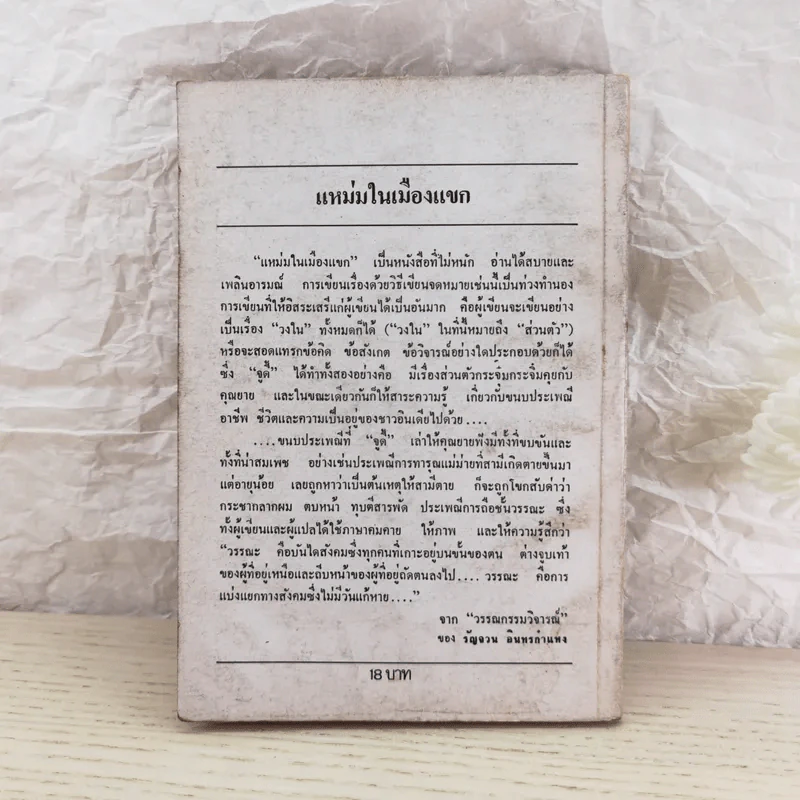 แหม่มในเมืองแขก
“แหม่มในเมืองแขก” เป็นหนังสือที่ไม่หนัก อ่านได้สบายและ
เพลินอารมณ์ การเขียนเรื่องด้วยวิธีเขียนจดหมายเช่นนี้เป็นท่วงทำนอง
การเขียนที่ให้อิสระเสรีแก่ผู้เขียนได้เป็นอันมาก คือผู้เขียนจะเขียนอย่าง
เป็นเรื่อง “วงใน” ทั้งหมดก็ได้ (“วงใน” ในที่นี้หมายถึง “ส่วนตัว”)
หรือจะสอดแทรกข้อคิด ข้อสังเกต ข้อวิจารณ์อย่างใดประกอบด้วยก็ได้
ซึ่ง “จูดี้” ได้ทำทั้งสองอย่างคือ มีเรื่องส่วนตัวกระจุ๋มกระจิ๋มคุยกับ
คุณยาย และในขณะเดียวกันก็ให้สาระความรู้ เกี่ยวกับขนบประเพณี
อาชีพ ชีวิตและความเป็นอยู่ของชาวอินเดียไปด้วย....
....ขนบประเพณีที่ “จูดี้” เล่าให้คุณยายฟังมีทั้งที่ขบขันและ
ทั้งที่น่าสมเพช อย่างเช่นประเพณีการทารุณแม่ม่ายที่สามีเกิดตายขึ้นมา
แต่อายุน้อย เลยถูกหาว่าเป็นต้นเหตุให้สามีตาย ก็จะถูกโขกสับด่าว่า
กระชากลากผม ตบหน้า ทุบตีสารพัด ประเพณีการถือชั้นวรรณะ ซึ่ง
ทั้งผู้เขียนและผู้แปลได้ใช้ภาษาคมคาย ให้ภาพ และให้ความรู้สึกว่า
“วรรณะ คือบันไดสังคมซึ่งทุกคนที่เกาะอยู่บนขั้นของตน ต่างจูบเท้า
ของผู้ที่อยู่เหนือและถีบหน้าของผู้ที่อยู่ถัดตนลงไป.... วรรณะ คือการ
แบ่งแยกทางสังคมซึ่งไม่มีวันแก้หาย....”
จาก “วรรณกรรมวิจารณ์”
ของ รัญจวน อินทรกำแหง
18 บาท